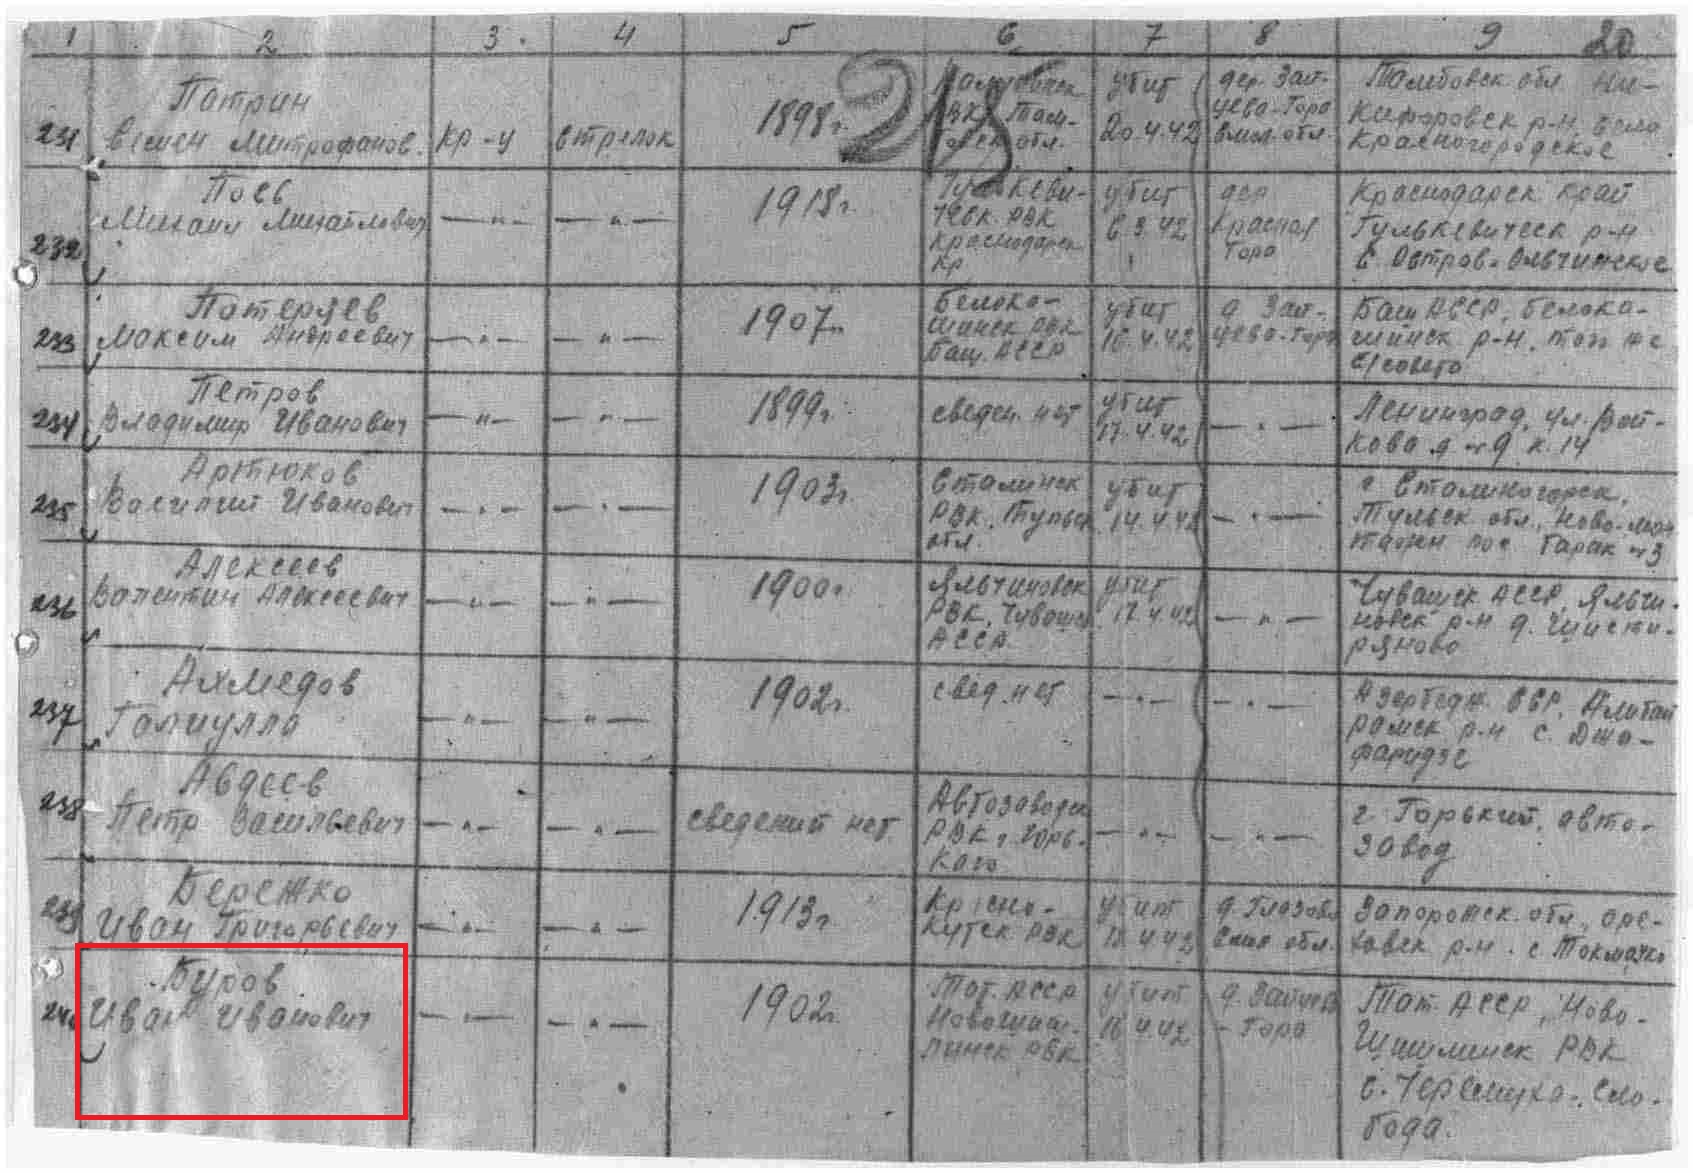 1 2 3. 4 5 6 7 8 9 20
215
231 Патрин
Семен Митрофанов. кр-ц стрелок 1898г.
РВК, Там-
овск. обл.
убит
20.4.42
дер. Зай-
цева-Гора
Смол. обл.
Тамбовск. обл. Ни-
кифоровск р-н село
Красногородское
232 Поев
Михаил Михайлович — " — — " — 1918г.
Гулькеви-
чевк. РВК
Краснодарск.
кр.
убит
6.3.42
дер
Красная
Гора
Краснодарск край
Гулькевическ р-н
с. Остров-Ольгинское
233 Потеряев
Максим Андреевич — " — — " — 1907г.
Белока-
тайск РВК
Баш. АССР
убит
16.4.42
д. Зай-
цева-Гора
Баш АССР, Белока-
р-н,
с/совета
234 Петров
Владимир Иванович — " — — " — 1899г.
сведен. нет
убит
17.4.42
— " —
Ленинград, ул. Вой-
кова д №9 к. 14
235 Артюков
Василий Иванович — " — — " — 1903г.
Сталинск
РВК, Тульск
обл.
убит
14.4.42
— " —
г Сталиногорск,
Тульск обл., Ново-
пос Барак №3
236 Алексеев
Валентин Алексеевич — " — — " — 1900г.
Яльчиковск
РВК, Чувашск
АССР.
убит
17.4.42
— " —
Чувашск АССР, Яльчи-
ковск р-н д.
ряново
237 Ахмедов
Галиулла — " — — " — 1902г.
свед. нет
— " —
— " —
Азербедж. ССР,
рамск р-н с. Джа-
фаридзе
238 Авдеев
Петр Васильевич — " — — " — сведений нет
Автозаводск
РВК г Горь-
кого
— " —
— " —
г. Горький, авто-
завод
239 Бережко
Иван Григорьевич — " — — " — 1913г.
Красно-
кутск РВК
убит
15.4.42
д. Глазово
Смол обл.
Запорожск. обл., Оре-
ховск р-н. с. Токмачка
240 Буров
Иван Иванович — " — — " — 1902г.
Тат. АССР
Новошиш-
линск РВК
убит
16.4.42
д. Зайцева
-Гора
Тат. АССР, Ново-
Шишминск РВК
с. Черемуха-, Сло-
бода.